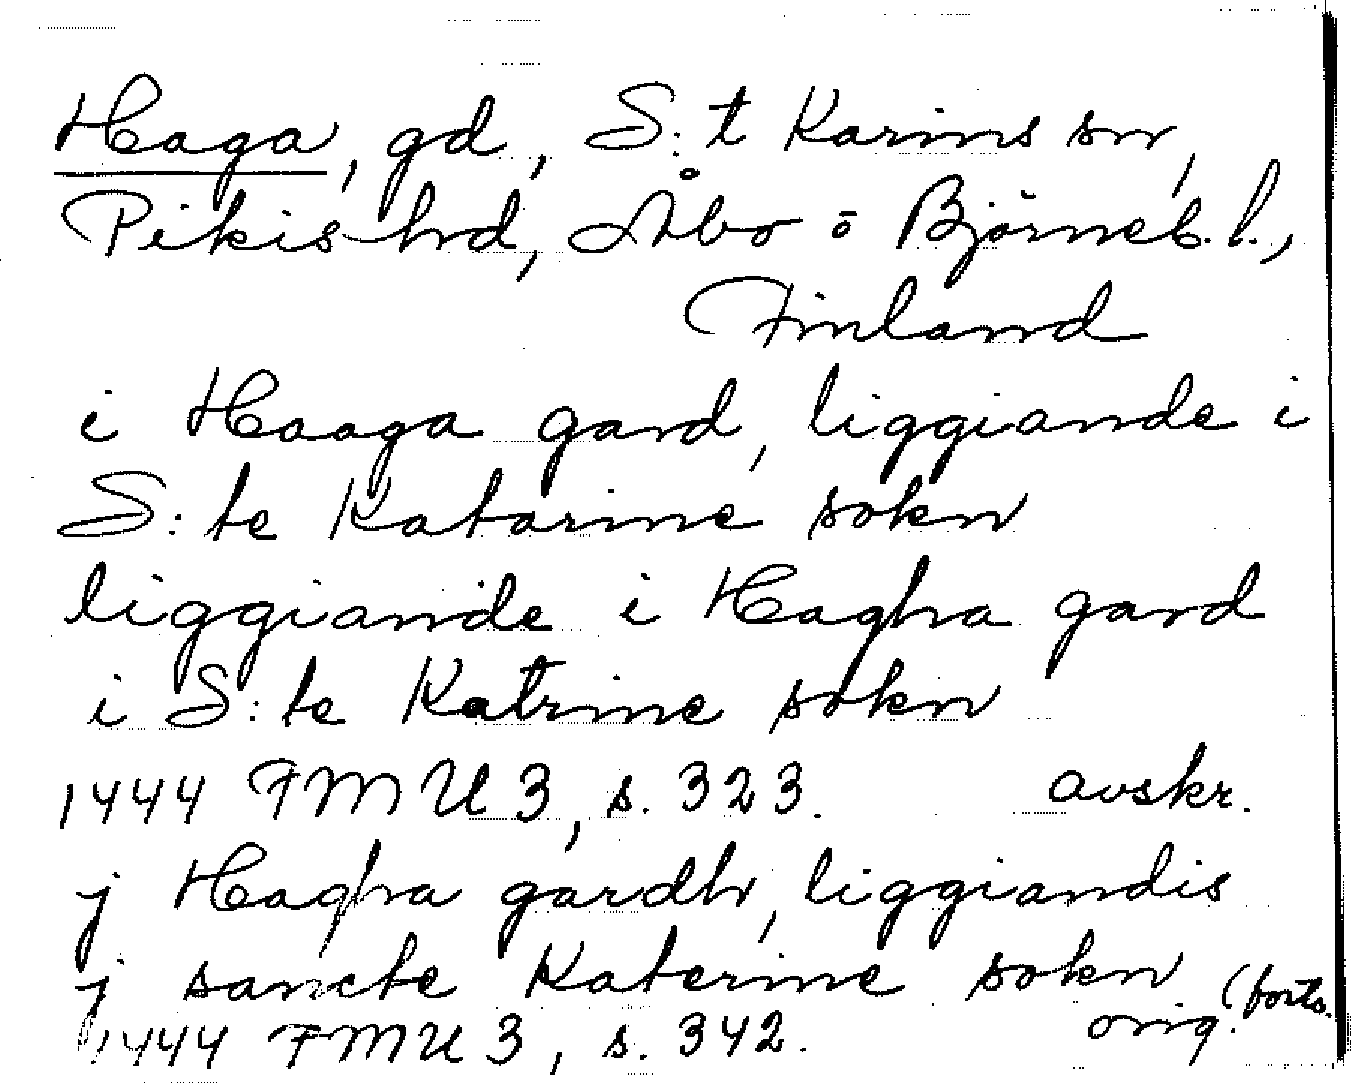 Haga, gd, S:t Karins sn,
Pikis hrd, Åbo o Björneb. l.,
Finland
i Haaga gard, liggiande i
S:te Katarine sokn
liggiande i Hagha gard
i S:te Katrine sokn
1444 FMU 3, s. 323. avskr.
j Hagha gardh, liggiandis
j sancte Katerine sokn (forts.
1444 FMU 3, s. 342. orig.